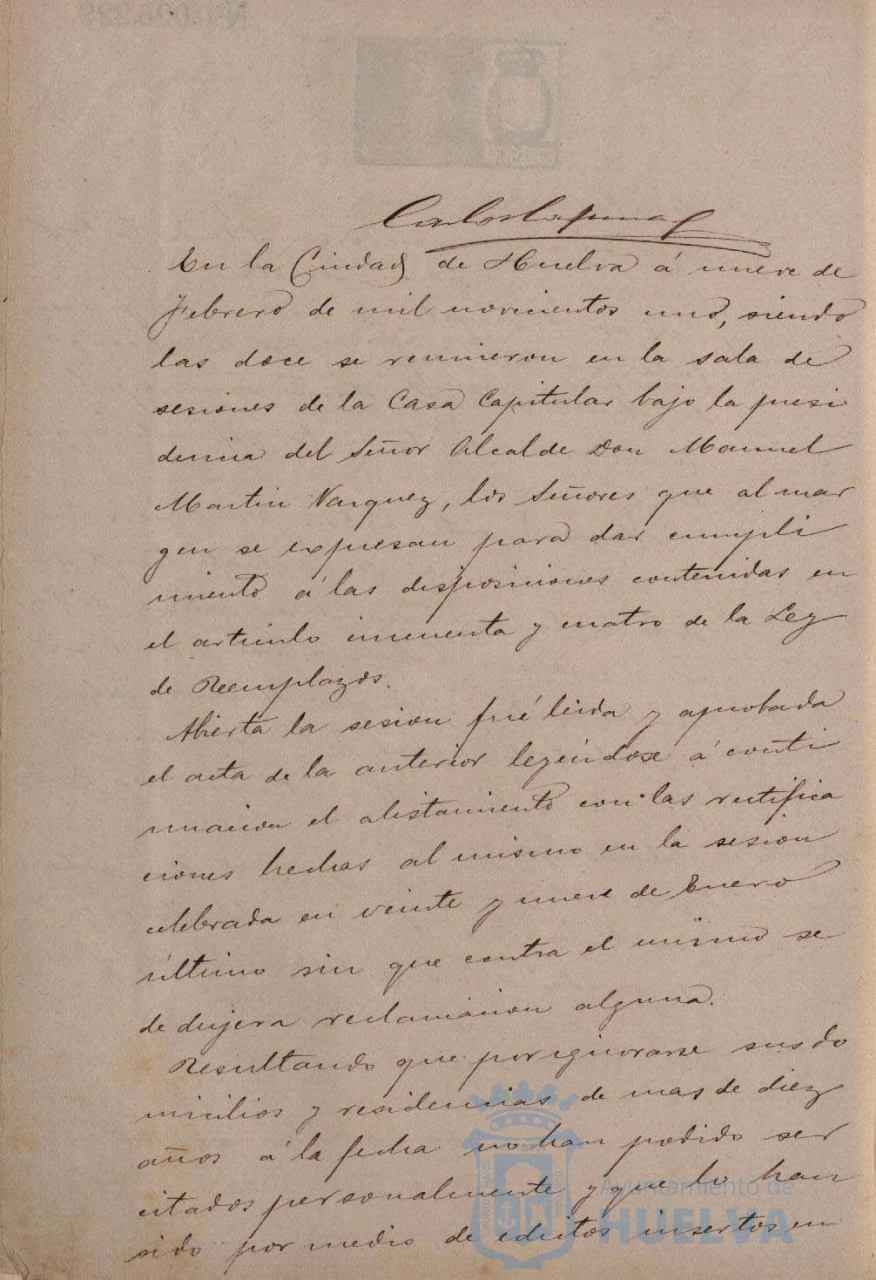 En la Ciudad de Huelva á nueve de
Febrero de mil novecientos uno, siendo
las doce se reunieron en la sala de
sesiones de la Casa Capitular bajo la presi
dencia del Señor Alcalde Don Manuel
Martin Vazquez, los Señores que al mar
gen se expresan para dar cumpli
miento á las disposiciones contenidas en
el artículo cincuenta y cuatro de la Ley
de Reemplazos.
Abierta la sesion fué leida y aprobada
el acta de la anterior leyéndose á conti
nuacion el alistamiento con las rectifica
ciones hechas al mismo en la sesion
celebrada en veinte y nueve de Enero
último sin que contra el mismo se
dedujera reclamacion alguna.
Resultando que por ignorarse sus do
micilios y residencias de mas de diez
años á la fecha no han podido ser
citados personalmente y que lo han
sido por medio de edictos insertos en
Ayuntamiento de
HUELVA